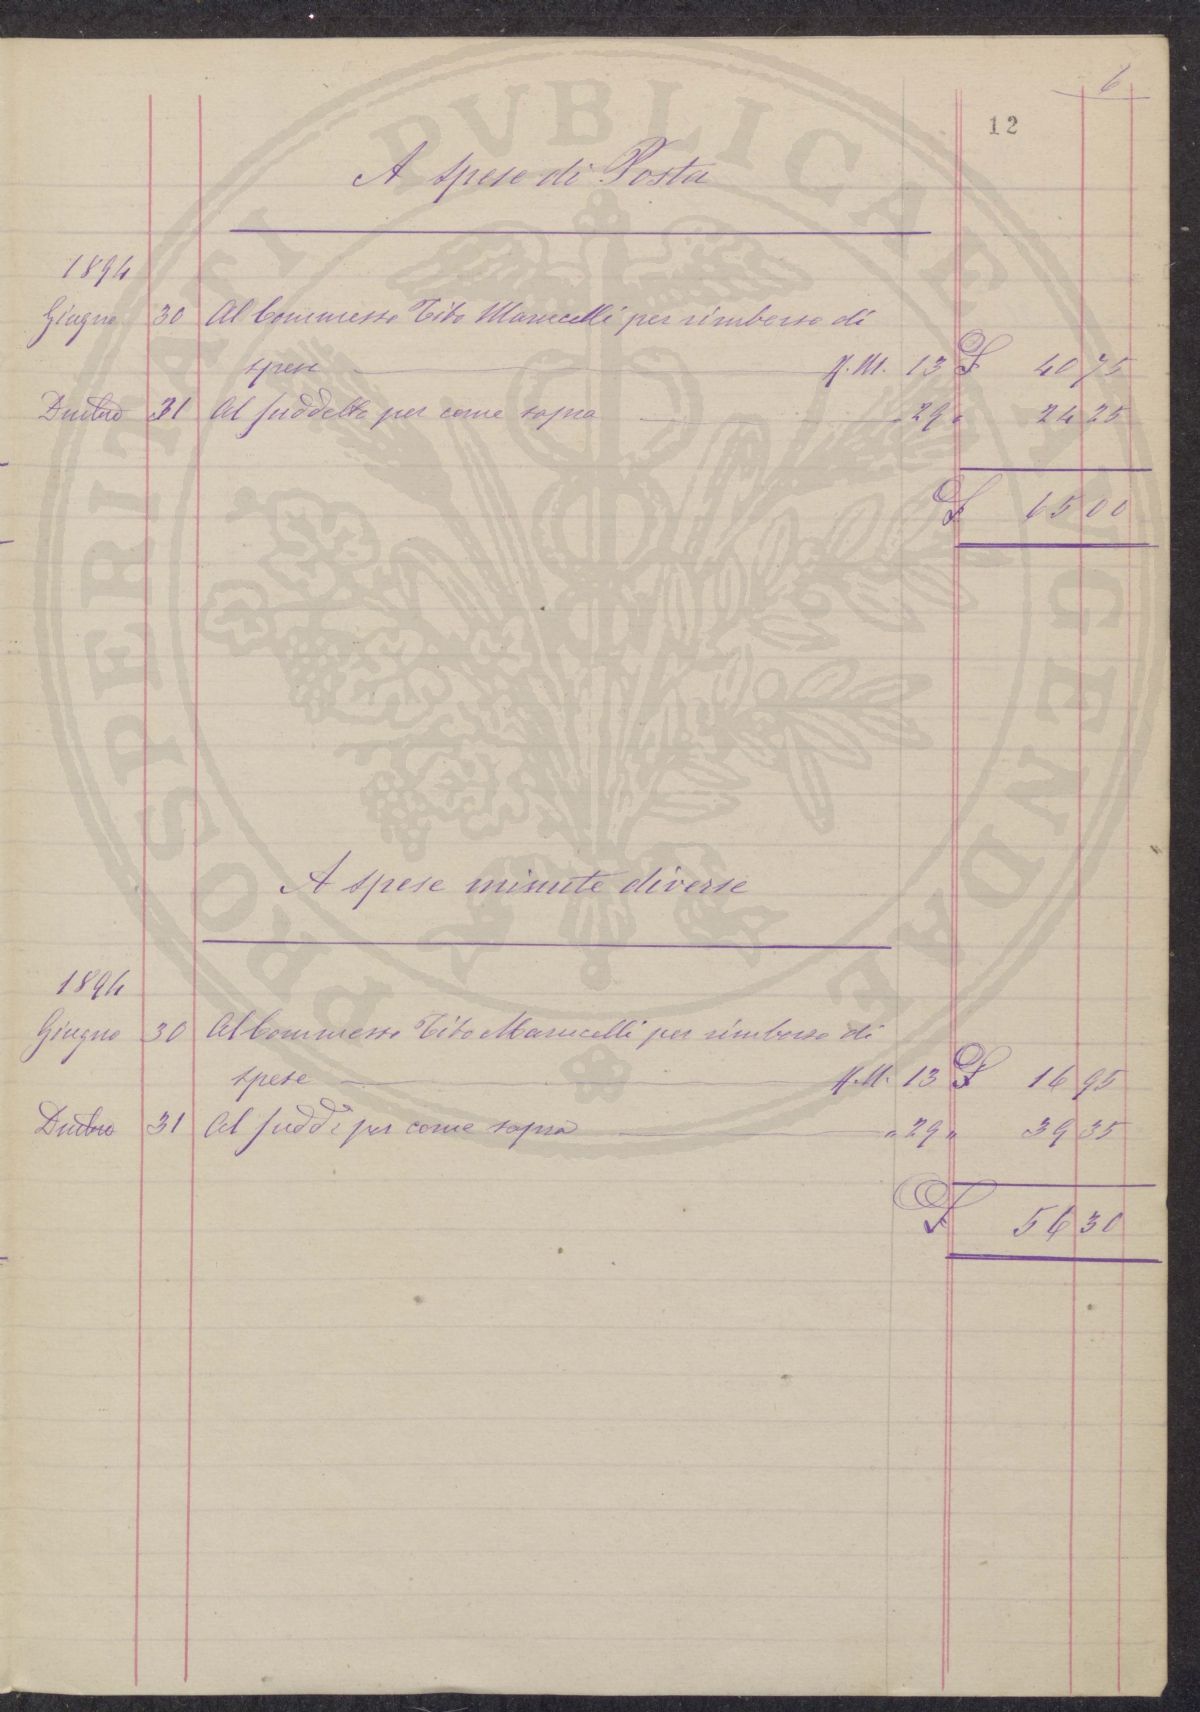 6
12
A spese di Posta
1894
Giugno 30 Al Commesso Tito Marucelli per rimborso di
spese M. 13 £ 40 75
Dicbre 31 Al suddetto per come sopra 29 " 24 25
£ 65 00
A spese minute diverse
1894
Giugno 30 Al Commesso Tito Marucelli per rimborso di
spese M. 13 £ 16 95
Dicbre 31 Al sudd. per come sopra " 29 " 39 35
£ 56 30
PROSPERITATI PVBLICAE AVGENDAE